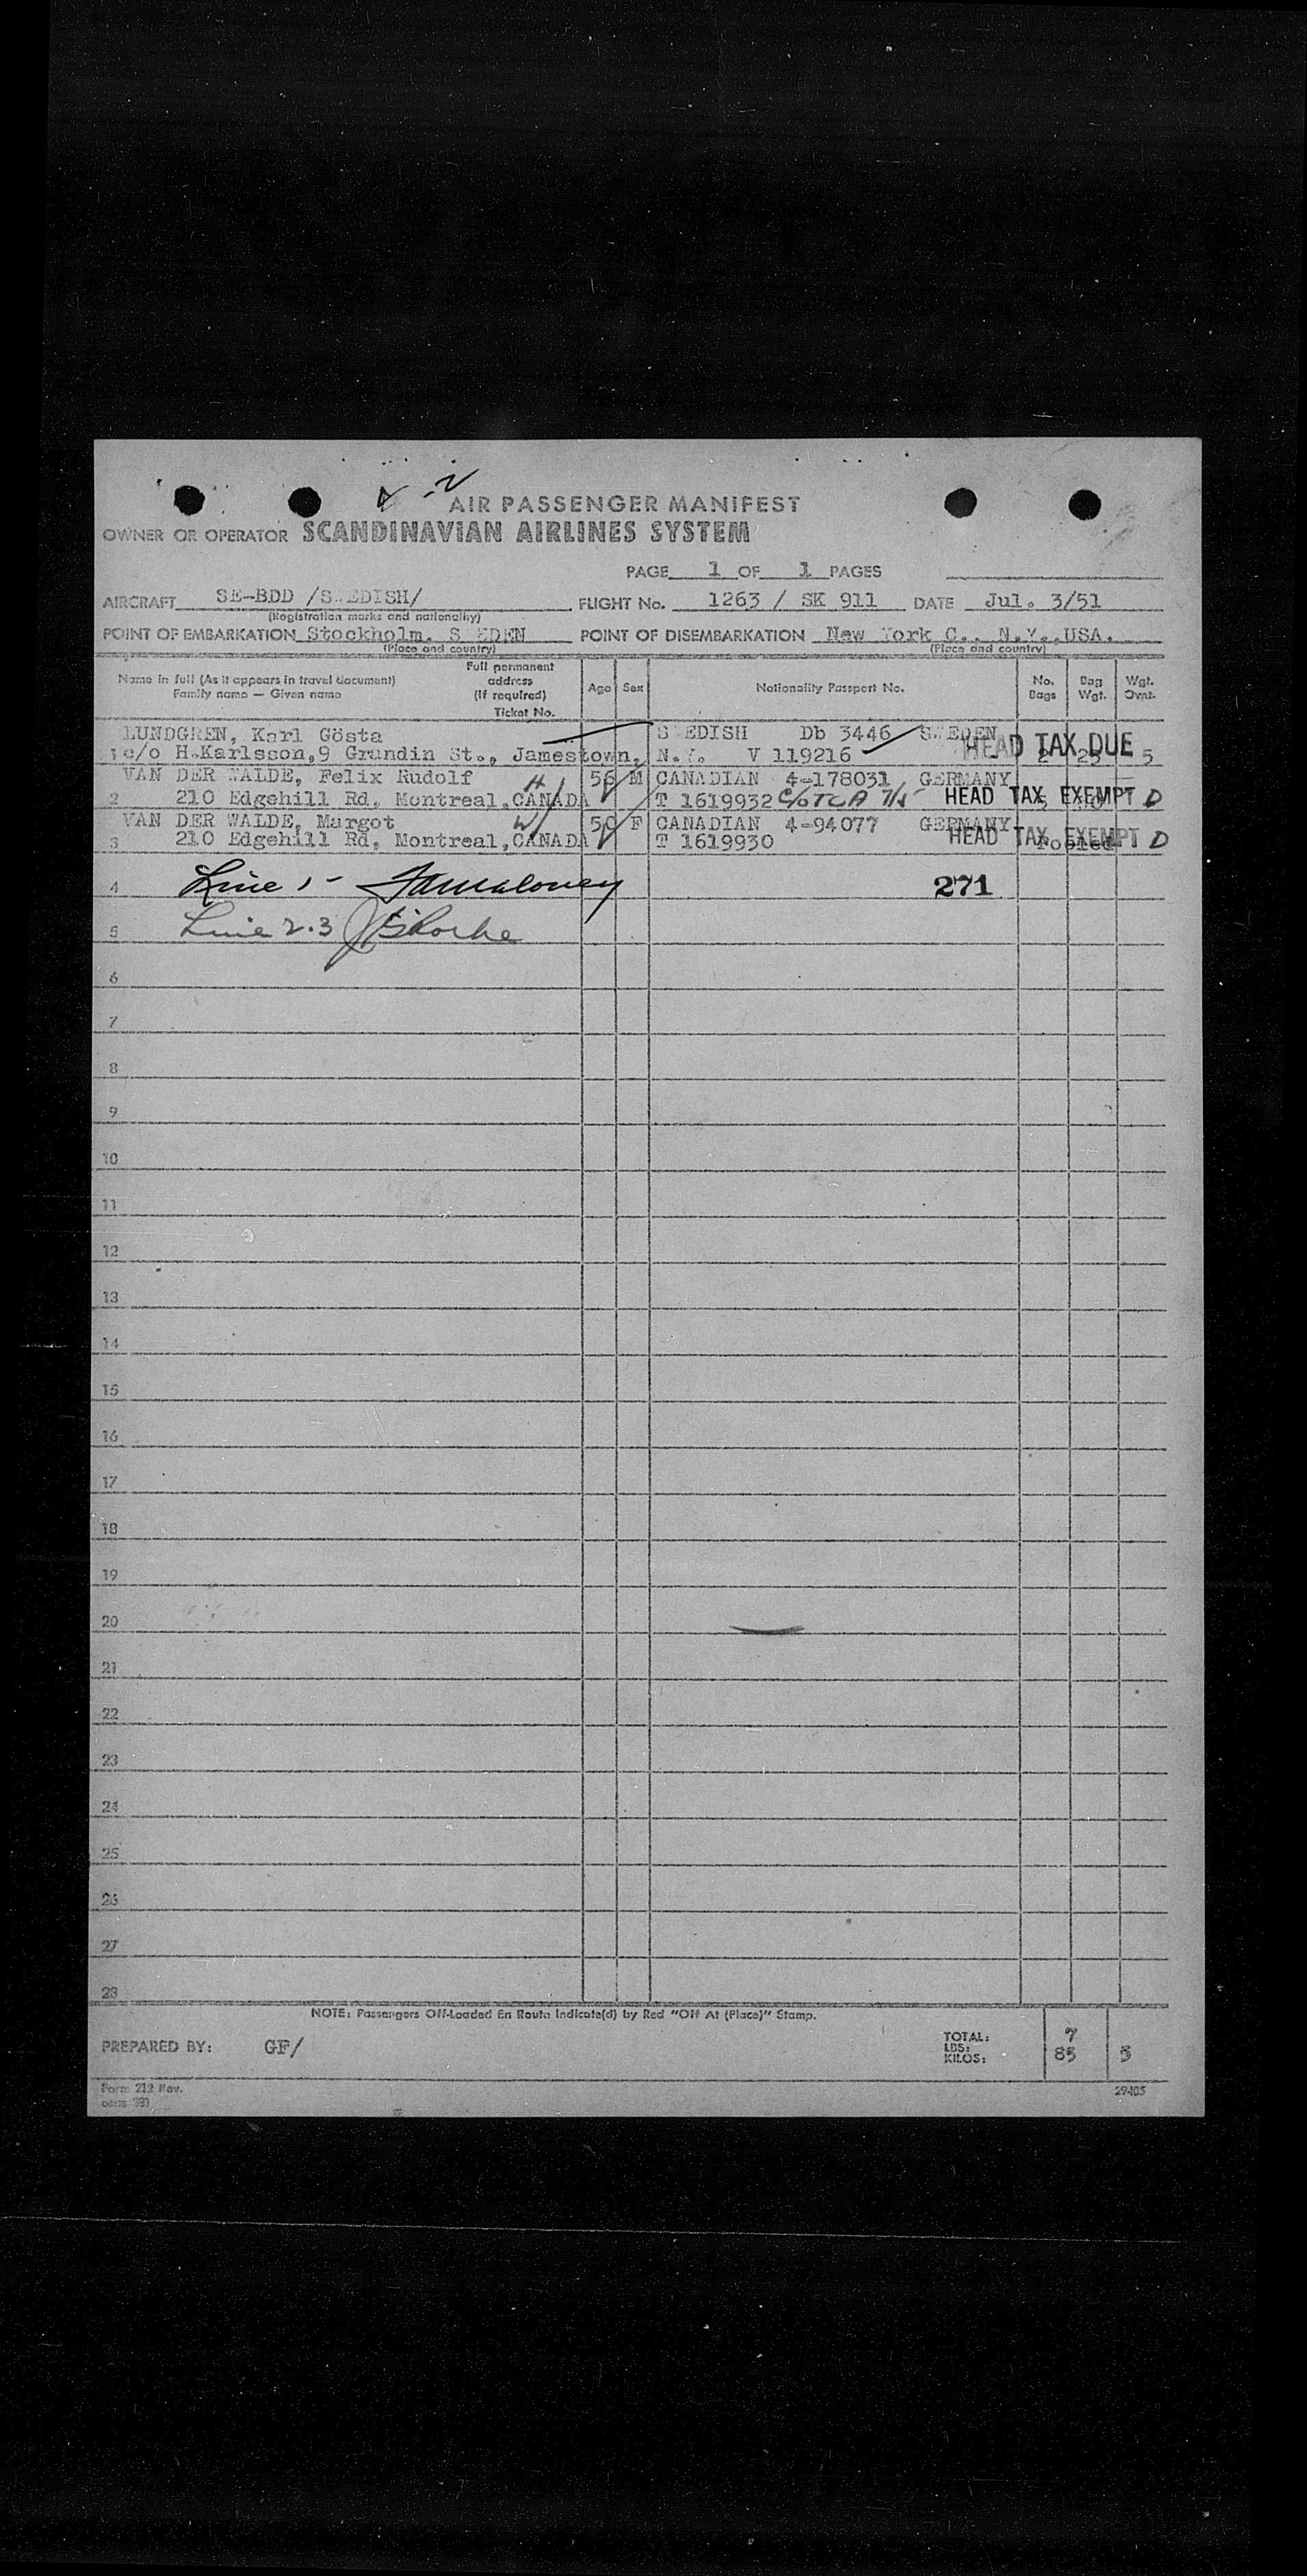 AIR PASSENGER MANIFEST
OWNER OR OPERATOR SCANDINAVIAN AIRLINES SYSTEM
PAGE 1 OF 1 PAGES
AIRCRAFT SE-BDD /SWEDISH/ FLIGHT No. 1263 / SK 911 DATE Jul. 3/51
(Registration marks and nationality)
POINT OF EMBARKATION Stockholm. SWEDEN POINT OF DISEMBARKATION New York C., N.Y., USA.
(Place and country) (Place and country)
Name in full (As it appears in travel document) Family name — Given name Full permanent address (If required) Ticket No. Age Sex Nationality Passport No. No. Bags Bag Wgt. Wgt. Ovnt.
LUNDGREN, Karl Gösta SWEDISH Db 3446 SWEDEN
1 c/o H.Karlsson,9 Grandin St., Jamestown, N.Y. V 119216 HEAD TAX DUE 2 25 5
VAN DER WALDE, Felix Rudolf 56 M CANADIAN 4-178031 GERMANY
2 210 Edgehill Rd, Montreal,CANADA H T 1619932 c/o TCA 7/5 HEAD TAX EXEMPT D
VAN DER WALDE, Margot W 50 F CANADIAN 4-94077 GERMANY
3 210 Edgehill Rd, Montreal,CANADA T 1619930 HEAD TAX EXEMPT D
4 Line 1 - 271
5 Line 2.3
6
7
8
9
10
11
12
13
14
15
16
17
18
19
20
21
22
23
24
25
26
27
28
NOTE: Passengers Off-Loaded En Route Indicate(d) by Red "Off At (Place)" Stamp.
PREPARED BY: GF/ TOTAL: 7
LBS:
KILOS: 85 5
Form 212 Rev.
29405